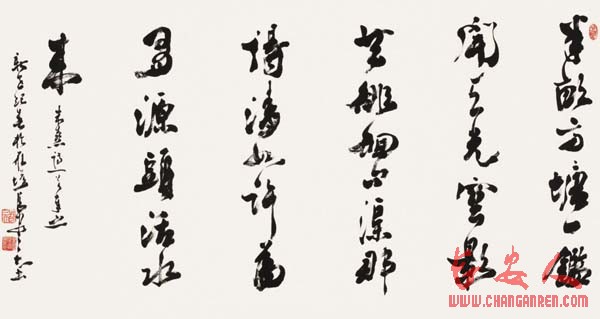 半畝方塘一鑑
開天光雲影
共徘徊問渠那
得清如許為
有源頭活水
来
朱熹詩一首
新世紀
长安人
WWW.CHANGANREN.COM